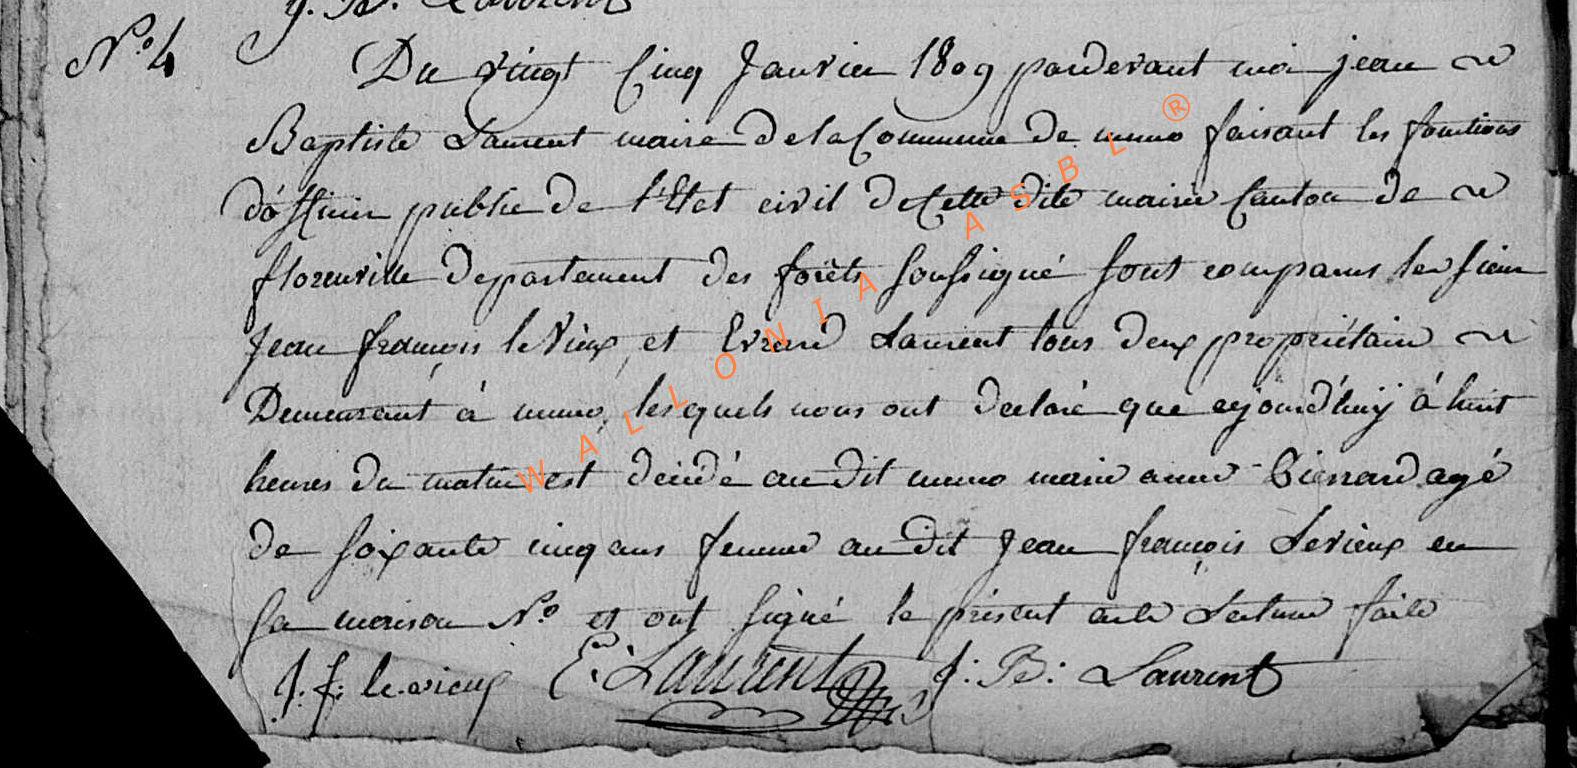 J. B. Laurent
N.o 4
Du vingt Cinq Janvier 1809 pardevant moi jean
Baptiste Laurent maire de la Commune de muno faisant les fonctions
d'officier public de l'Etat civil de Cette dite mairie Canton de
florenville departement des forêts soussigné sont comparus les sieur
Jean françois le Vieux, et Evrard Laurent tous deux propriétaire
Demeurant á muno, lesquels nous ont declaré que aujourd'huy á huit
heures du matin est décédé au dit muno marie anne Pierrard agé
de soixante cinq ans femme au dit Jean françois Levieux en
sa maison N.o et ont signé le présent acte Lecture faite
J. f: le vieux E: Laurent J: B: Laurent
WALLONIA ASBL ®